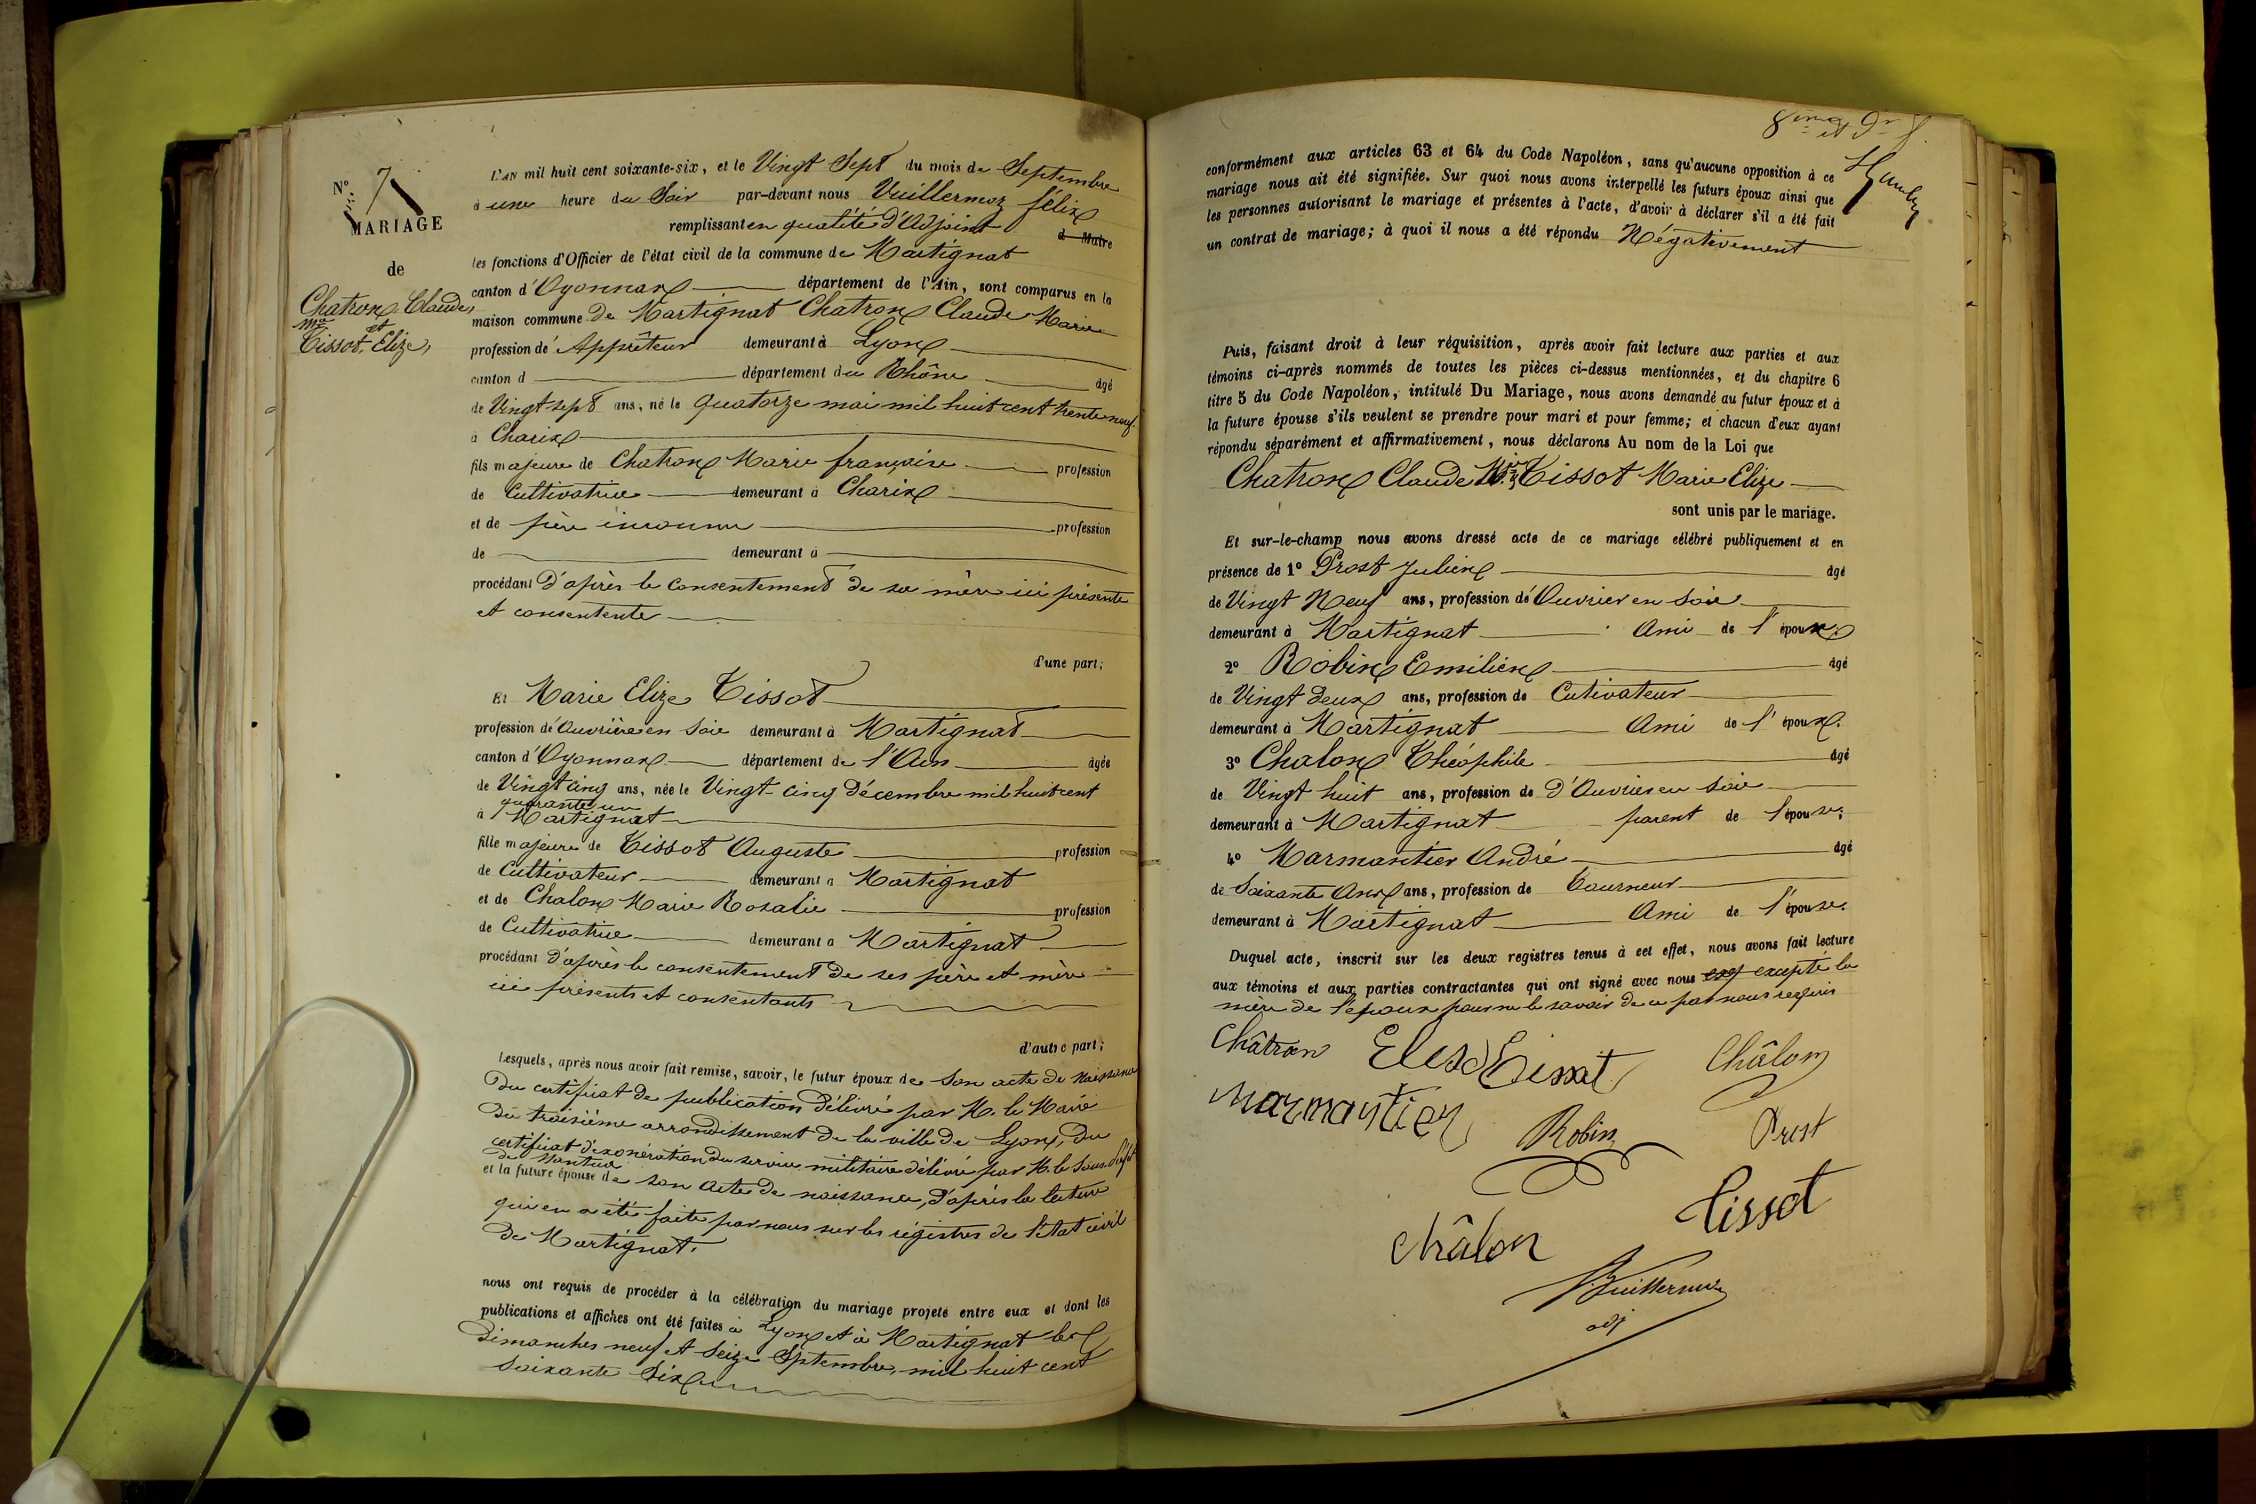 N° 7
MARIAGE
de
Chatron Claude
Mie et
Tissot, Elize,
L'AN mil huit cent soixante-six, et le Vingt Sept du mois de Septembre
à une heure du Soir par-devant nous Vuillermoz félix
remplissant en qualité d'Adjoint d Maire
les fonctions d'Officier de l'état civil de la commune de Martignat
canton d'Oyonnax département de l'Ain, sont comparus en la
maison commune de Martignat Chatron Claude Marie
profession de Apprêteur demeurant à Lyon
canton d département du Rhône âgé
de Vingt sept ans, né le quatorze mai mil huit cent trente neuf
à Charix
fils majeure de Chatron Marie françoise profession
de Cultivatrice demeurant à Charix
et de père inconnu profession
de demeurant à
procédant d'après le consentement de sa mère ici présente
et consentente
d'une part;
Et Marie Elize Tissot
profession de Ouvrière en Soie demeurant à Martignat
canton d'Oyonnax département de l'Ain âgée
de Vingt cinq ans, née le Vingt-cinq décembre mil huit cent
quarante un
à Martignat
fille majeure de Tissot Auguste profession
de Cultivateur demeurant à Martignat
et de Chalon Marie Rosalie profession
de Cultivatrice demeurant à Martignat
procédant d'après le consentement de ses père et mère
ici présents et consentants
d'autre part;
Lesquels, après nous avoir fait remise, savoir, le futur époux de son acte de naissance
du certificat de publication délivré par M. le Maire
du troisième arrondissement de la ville de Lyon, du
certificat d'exonération du service militaire délivré par M. le Sous-Préfet
de Nantua
et la future épouse de son acte de naissance, d'après la lecture
qui en a été faite par nous sur les régistres de l'état civil
de Martignat.
nous ont requis de procéder à la célébration du mariage projeté entre eux et dont les
publications et affiches ont été faites à Lyon et à Martignat les
dimanches neuf et seize Septembre, mil huit cent
soixante Six
8ème et 9
conformément aux articles 63 et 64 du Code Napoléon, sans qu'aucune opposition à ce
mariage nous ait été signifiée. Sur quoi nous avons interpellé les futurs époux ainsi que
les personnes autorisant le mariage et présentes à l'acte, d'avoir à déclarer s'il a été fait
un contrat de mariage; à quoi il nous a été répondu Négativement
Puis, faisant droit à leur réquisition, après avoir fait lecture aux parties et aux
témoins ci-après nommés de toutes les pièces ci-dessus mentionnées, et du chapitre 6
titre 5 du Code Napoléon, intitulé Du Mariage, nous avons demandé au futur époux et à
la future épouse s'ils veulent se prendre pour mari et pour femme; et chacun d'eux ayant
répondu séparément et affirmativement, nous déclarons Au nom de la Loi que
Chatron Claude Mie et Tissot Marie Elize
sont unis par le mariage.
Et sur-le-champ nous avons dressé acte de ce mariage célébré publiquement et en
présence de 1° Prost Julien âgé
de Vingt Neuf ans, profession de Ouvrier en Soie
demeurant à Martignat Ami de l'époux
2° Robin Emilien âgé
de Vingt deux ans, profession de Cutivateur
demeurant à Martignat Ami de l'époux.
3° Chalon Théophile âgé
de Vingt huit ans, profession de d'Ouvrier en Soie
demeurant à Martignat parent de l'épouse;
4° Marmantier André âgé
de Soixante Ans ans, profession de Tourneur
demeurant à Martignat Ami de l'épouse.
Duquel acte, inscrit sur les deux registres tenus à cet effet, nous avons fait lecture
aux témoins et aux parties contractantes qui ont signé avec nous excepté la
mère de l'époux pour ne le savoir de ce par nous requis
Châtron Elisa Tissot Châlon
Marmantier Robin Prost
Tissot
Châlon
Vuillermoz
adj